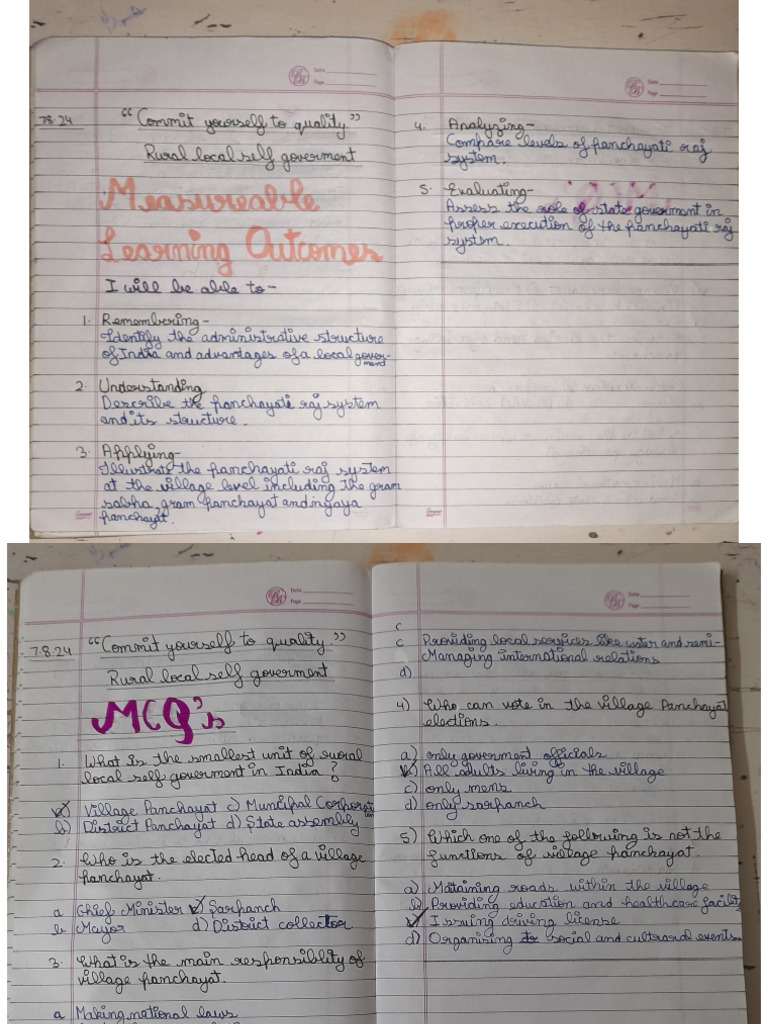 Date
Page
7.8.24
"Commit yourself to quality"
Rural local self goverment
Measureable
Learning Outcomes
I will be able to-
1. Remembering-
Identify the administrative structure
of India and advantages of a local gover-
ment
2. Understanding
Describe the panchayati raj system
and its structure.
3. Applying-
Illustrate the panchayati raj system
at the village level including the gram
sabha, gram panchayat and nyaya
panchayat.
Date
Page
4. Analyzing-
Compare levels of panchayati raj
system.
5. Evaluating-
Assess the role of state goverment in
proper execution of the panchayati raj
system.
Date
Page
7.8.24
"Commit yourself to quality."
Rural local self goverment
MCQ's
1. What is the smallest unit of rural
local self goverment in India?
a) Village Panchayat c) Muncipal Corporat
ion
b) District Panchayat d) State assembly
2. Who is the elected head of a village
panchayat.
a Chief Minister c) Sarpanch
b Mayor d) District collector
3. What is the main responsiblity of
village panchayat.
a Making national laws
Date
Page
c
c Providing local services like water and
Managing international relations
d)
4) Who can vote in the village Panchayat
elections.
a) only goverment officials
b) All adults living in the village
c) only mens
d) only sarpanch
5) Which one of the following is not the
functions of village panchayat.
a) Mataining roads within the village
b) Providing education and healthcare facilit
c) Issuing driving license
d) Organising social and cultural events